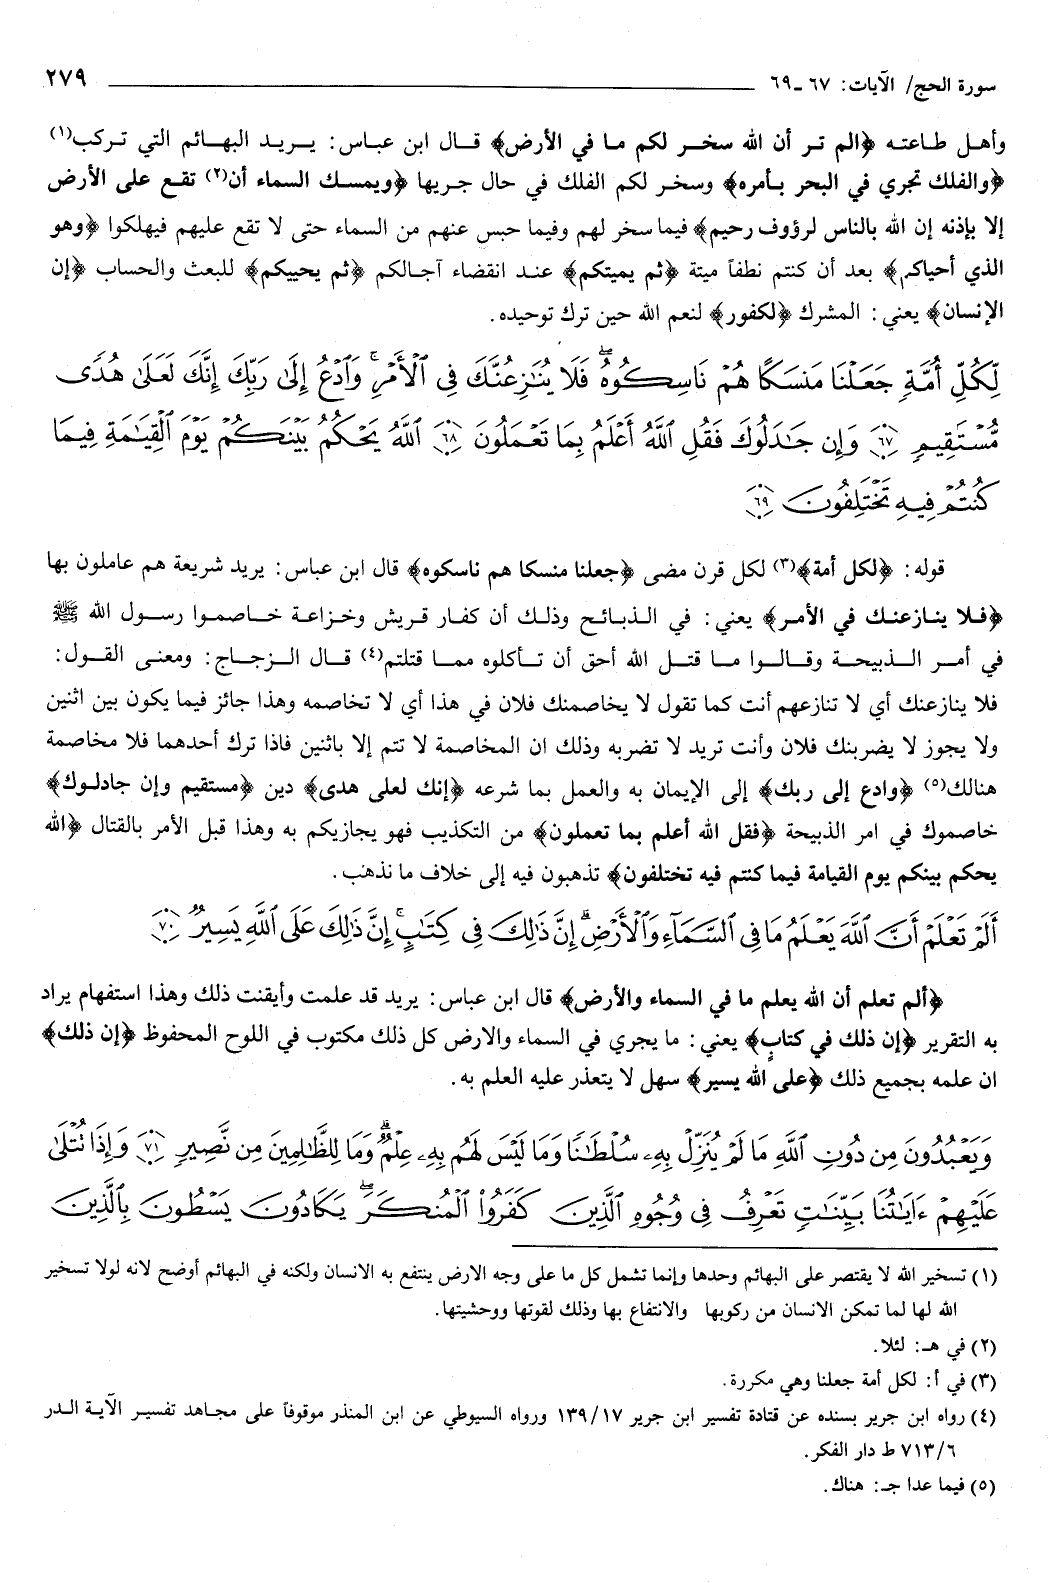 سورة الحج/ الآيات: ٦٧ ـ ٦٩ ٢٧٩
وأهل طاعته ﴿الم تر أن الله سخر لكم ما في الأرض﴾ قال ابن عباس: يريد البهائم التي تركب(١)
﴿والفلك تجري في البحر بأمره﴾ وسخر لكم الفلك في حال جريها ﴿ويمسك السماء أن(٢) تقع على الأرض
إلا بإذنه إن الله بالناس لرؤوف رحيم﴾ فيما سخر لهم وفيما حبس عنهم من السماء حتى لا تقع عليهم فيهلكوا ﴿وهو
الذي أحياكم﴾ بعد أن كنتم نطفاً ميتة ﴿ثم يميتكم﴾ عند انقضاء آجالكم ﴿ثم يحييكم﴾ للبعث والحساب ﴿إن
الإنسان﴾ يعني: المشرك ﴿لكفور﴾ لنعم الله حين ترك توحيده.
لِّكُلِّ أُمَّةٍ جَعَلْنَا مَنسَكًا هُمْ نَاسِكُوهُ ۖ فَلَا يُنَٰزِعُنَّكَ فِى ٱلْأَمْرِ ۚ وَٱدْعُ إِلَىٰ رَبِّكَ إِنَّكَ لَعَلَىٰ هُدًى
مُّسْتَقِيمٍ ٦٧ وَإِن جَٰدَلُوكَ فَقُلِ ٱللَّهُ أَعْلَمُ بِمَا تَعْمَلُونَ ٦٨ ٱللَّهُ يَحْكُمُ بَيْنَكُمْ يَوْمَ ٱلْقِيَٰمَةِ فِيمَا
كُنتُمْ فِيهِ تَخْتَلِفُونَ ٦٩
قوله: ﴿لكل أمة﴾(٣) لكل قرن مضى ﴿جعلنا منسكا هم ناسكوه﴾ قال ابن عباس: يريد شريعة هم عاملون بها
﴿فلا ينازعنك في الأمر﴾ يعني: في الذبائح وذلك أن كفار قريش وخزاعة خاصموا رسول الله ﷺ
في أمر الذبيحة وقالوا ما قتل الله أحق أن تأكلوه مما قتلتم(٤) قال الزجاج: ومعنى القول:
فلا ينازعنك أي لا تنازعهم أنت كما تقول لا يخاصمنك فلان في هذا أي لا تخاصمه وهذا جائز فيما يكون بين اثنين
ولا يجوز لا يضربنك فلان وأنت تريد لا تضربه وذلك ان المخاصمة لا تتم إلا باثنين فاذا ترك أحدهما فلا مخاصمة
هنالك(٥) ﴿وادع إلى ربك﴾ إلى الإيمان به والعمل بما شرعه ﴿إنك لعلى هدى﴾ دين ﴿مستقيم وإن جادلوك﴾
خاصموك في امر الذبيحة ﴿فقل الله أعلم بما تعملون﴾ من التكذيب فهو يجازيكم به وهذا قبل الأمر بالقتال ﴿الله
يحكم بينكم يوم القيامة فيما كنتم فيه تختلفون﴾ تذهبون فيه إلى خلاف ما نذهب.
أَلَمْ تَعْلَمْ أَنَّ ٱللَّهَ يَعْلَمُ مَا فِى ٱلسَّمَآءِ وَٱلْأَرْضِ ۗ إِنَّ ذَٰلِكَ فِى كِتَٰبٍ ۚ إِنَّ ذَٰلِكَ عَلَى ٱللَّهِ يَسِيرٌ ٧٠
﴿ألم تعلم أن الله يعلم ما في السماء والأرض﴾ قال ابن عباس: يريد قد علمت وأيقنت ذلك وهذا استفهام يراد
به التقرير ﴿إن ذلك في كتابٍ﴾ يعني: ما يجري في السماء والارض كل ذلك مكتوب في اللوح المحفوظ ﴿إن ذلك﴾
ان علمه بجميع ذلك ﴿على الله يسير﴾ سهل لا يتعذر عليه العلم به.
وَيَعْبُدُونَ مِن دُونِ ٱللَّهِ مَا لَمْ يُنَزِّلْ بِهِۦ سُلْطَٰنًا وَمَا لَيْسَ لَهُم بِهِۦ عِلْمٌ ۗ وَمَا لِلظَّٰلِمِينَ مِن نَّصِيرٍ ٧١ وَإِذَا تُتْلَىٰ
عَلَيْهِمْ ءَايَٰتُنَا بَيِّنَٰتٍ تَعْرِفُ فِى وُجُوهِ ٱلَّذِينَ كَفَرُوا۟ ٱلْمُنكَرَ ۖ يَكَادُونَ يَسْطُونَ بِٱلَّذِينَ
(١) تسخير الله لا يقتصر على البهائم وحدها وإنما تشمل كل ما على وجه الارض ينتفع به الانسان ولكنه في البهائم أوضح لانه لولا تسخير
الله لها لما تمكن الانسان من ركوبها والانتفاع بها وذلك لقوتها ووحشيتها.
(٢) في هـ: لئلا.
(٣) في أ: لكل أمة جعلنا وهي مكررة.
(٤) رواه ابن جرير بسنده عن قتادة تفسير ابن جرير ١٣٩/١٧ ورواه السيوطي عن ابن المنذر موقوفاً على مجاهد تفسير الآية الدر
٧١٣/٦ ط دار الفكر.
(٥) فيما عدا جـ: هناك.